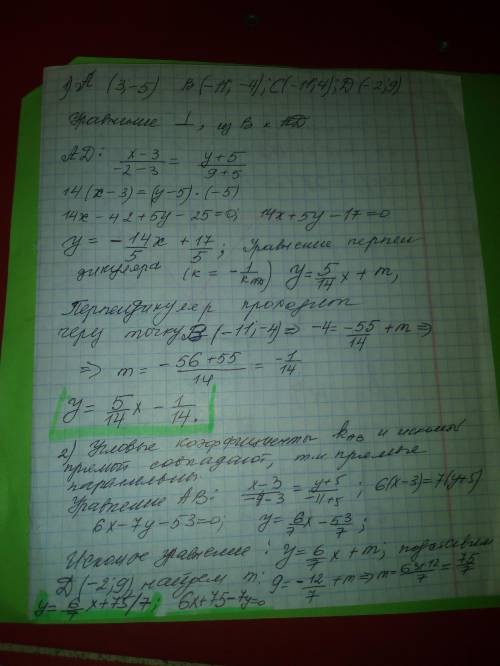 1) A (3;-5) B(-11,-4); C(-11,4); D(-2;9)
Уравнение ⊥, из B к AD
AD: (x-3)/(-2-3) = (y+5)/(9+5)
14(x-3)=(y-5)·(-5)
14x-42+5y-25=0; 14x+5y-17=0
y = -14/5 x + 17/5; Уравнение перпен
дикуляра (k = -1/k) y = 5/14 x + m,
Перпендикуляр проходит
через точку B (-11,-4) ⇒ -4 = -55/14 + m ⇒
⇒ m = (-56+55)/14 = -1/14
y = 5/14 x - 1/14.
2) Угловые коэффициенты k AB и искомой
прямой совпадают, т.к. прямые
параллельны
Уравнение AB: (x-3)/(-9-3) = (y+5)/(-11+5); 6(x-3)=7(y+5)
6x-7y-53=0; y = 6/7 x - 53/7;
Искомое уравнение: y = 6/7 x + m; подставим
D(-2;9) найдем m: 9 = -12/7 + m ⇒ m = (64+12)/7 = 75/7
y = 6/7 x + 75/7; 6x+75-7y=0